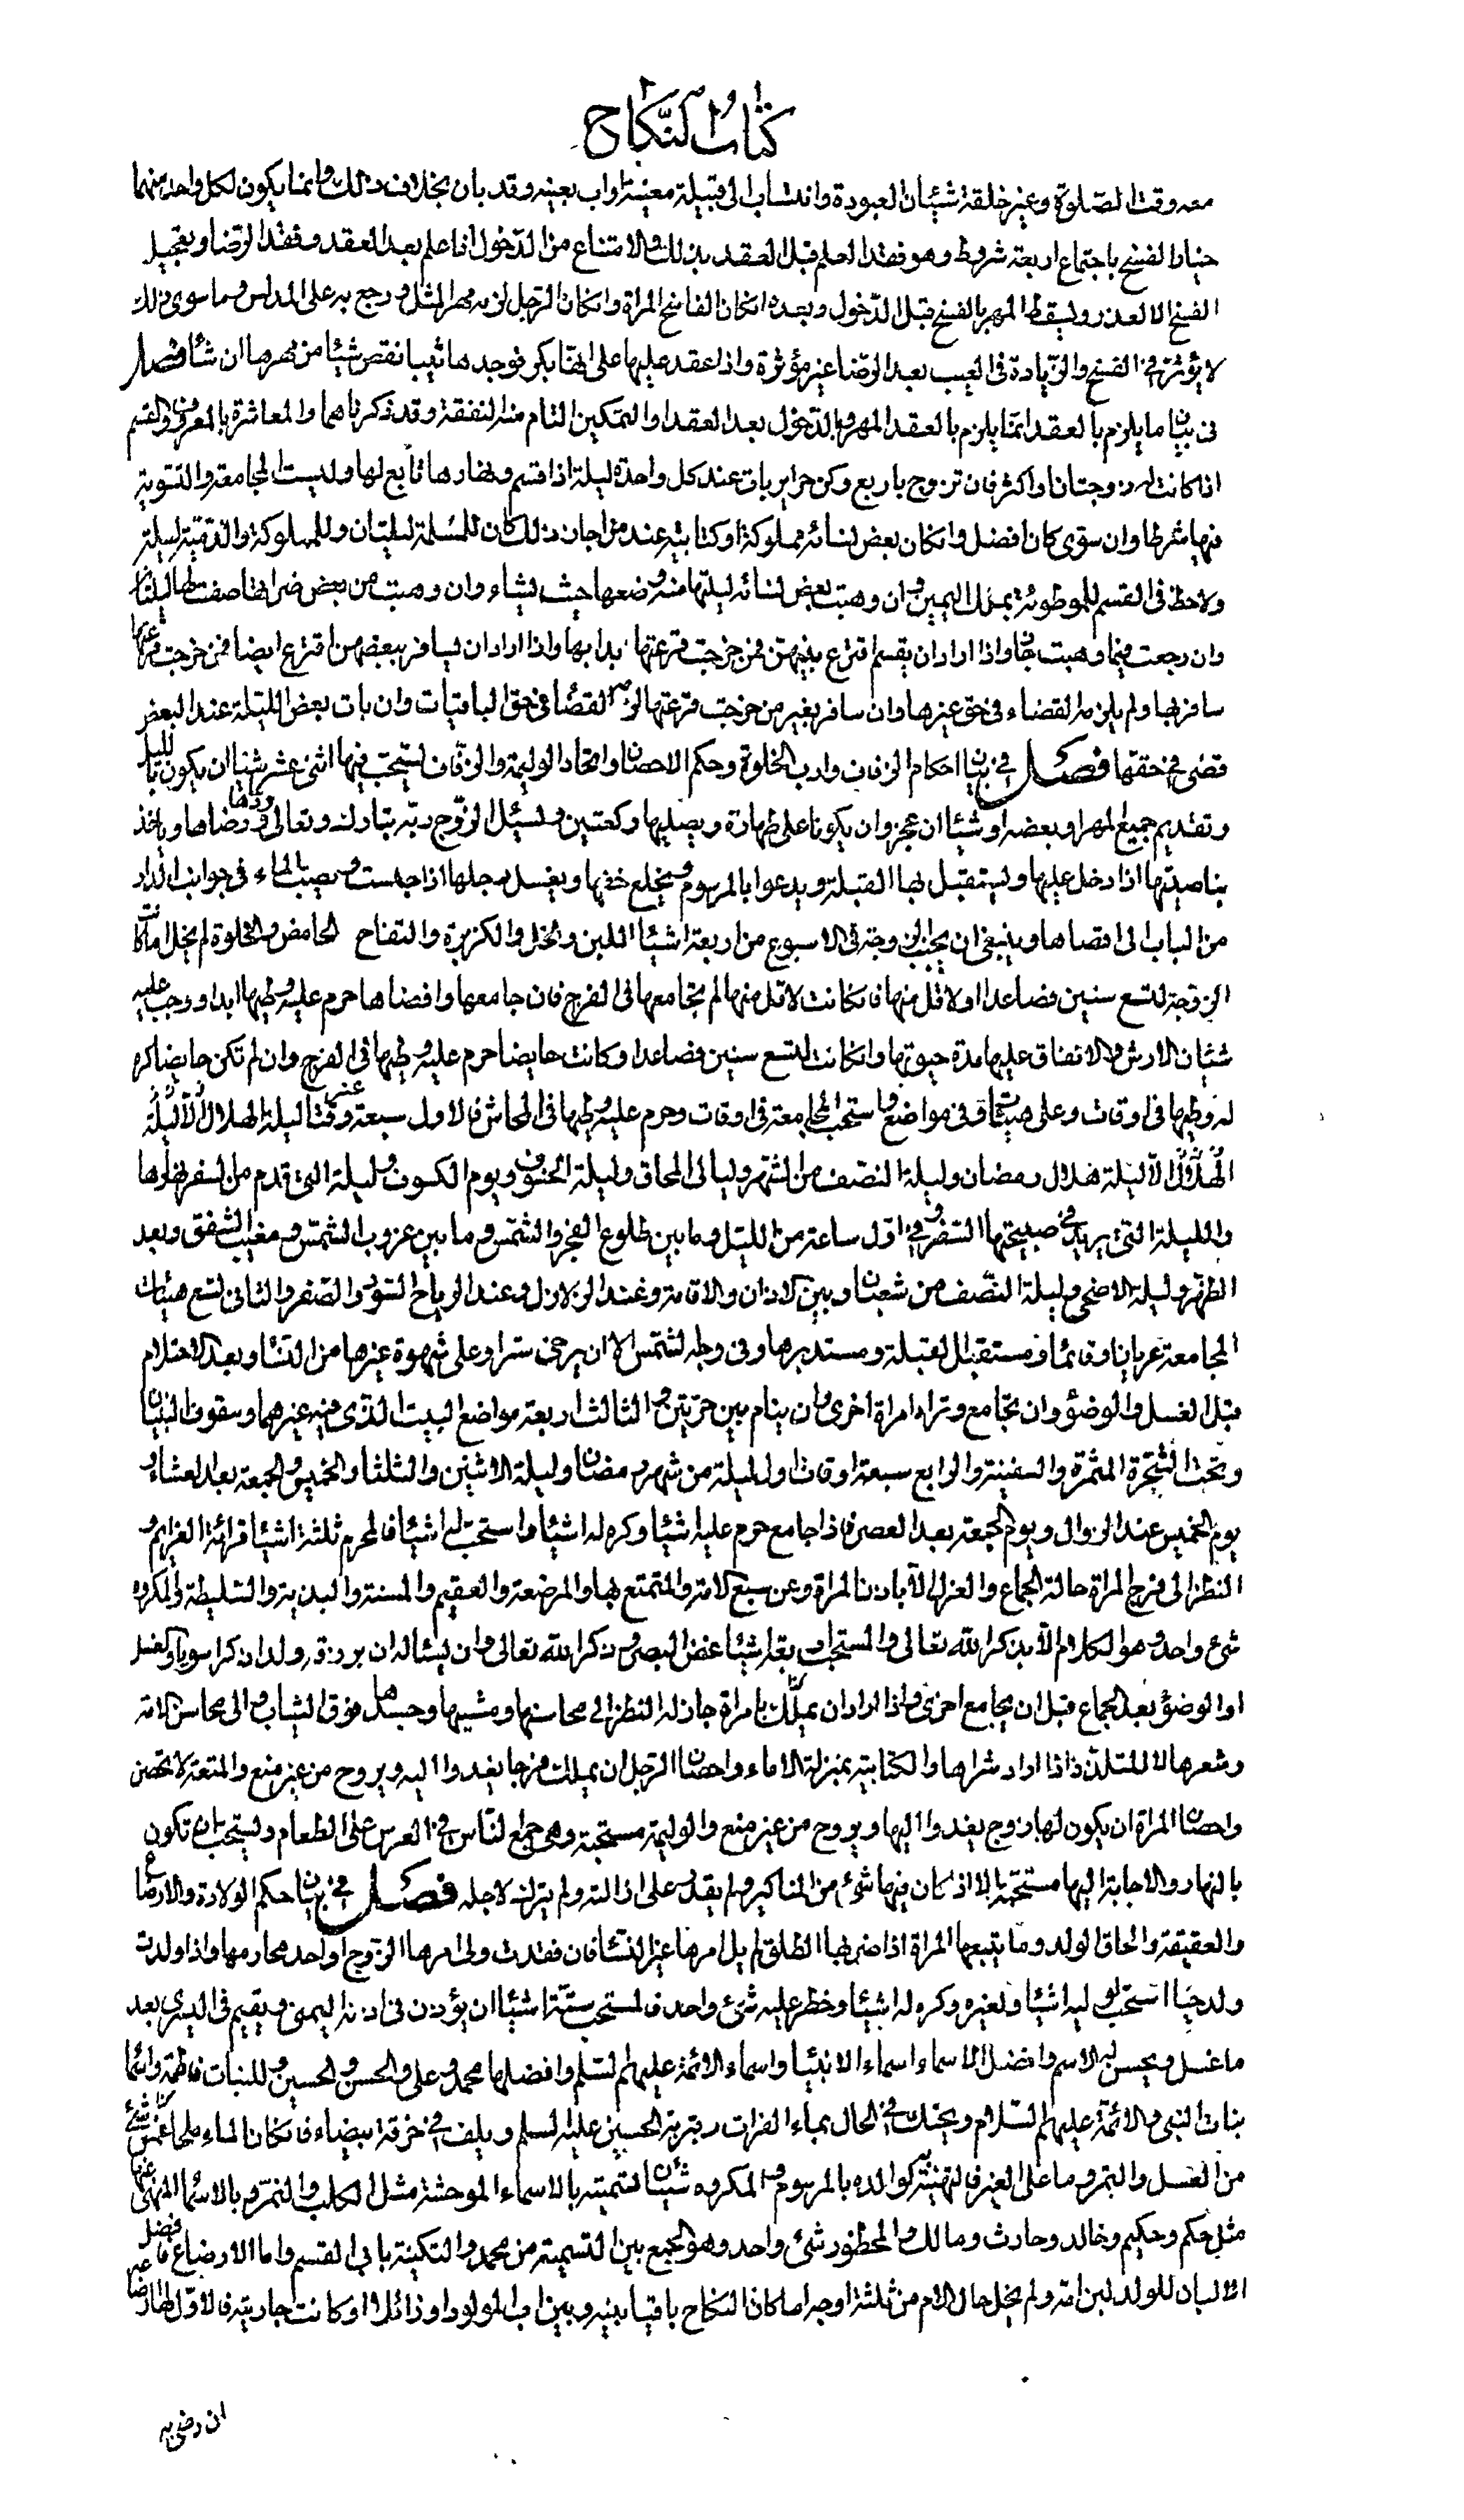 كتاب النكاح
معه وقت الصلوة وغير خلقة شيئان العبودة وانتساب الى قبيلة معينة او اب بعينه وقد بان بخلاف ذلك وانما يكون لكل واحد منهما
خيار الفسخ باجتماع اربعة شروط وهو فقد العلم قبل العقد بذلك والامتناع من الدخول اذا علم بعد العقد وفقد الرضا وتعجيل
الفسخ الا لعذر ويسقط المهر بالفسخ قبل الدخول وبعده انكان الفاسخ المراة وانكان الرجل لزمه مهر المثل ورجع به على المدلس وما سوى ذلك
لا يؤثر فى الفسخ والزيادة فى العيب بعد الرضا غير مؤثرة واذا عقد عليها على انها بكر فوجدها ثيبا نقص شيئا من مهرها ان شاء فصل
فى بيان ما يلزم بالعقد انما يلزم بالعقد المهر وبالدخول بعد العقد او التمكين التام منه النفقة وقد ذكرناهما والمعاشرة بالمعروف والقسم
اذا كانت له زوجتان او اكثر فان تزوج باربع وكن حراير بات عند كل واحدة ليلة اذا قسم ونهارها تابع لها وليست المجامعة والتسوية
فيها شرطا وان سوى كان افضل وانكان بعض نسائه مملوكة او كتابية عند من اجاز ذلك كان للمسلمة ليلتان وللمملوكة والذمية ليلة
ولا حظ فى القسم للموطوئة بملك اليمين وان وهبت بعض نسائه ليلتها منه وضعها حيث يشاء وان وهبت من بعض ضراتها صفت لها ليلتها
وان رجعت فيما وهبت جاز واذا اراد ان يقسم اقترع بينهن فمن خرجت قرعتها بدا بها واذا اراد ان يسافر ببعضهن اقترع ايضا فمن خرجت قرعتها
سافر بها ولم يلزمه القضاء فى حق غيرها وان سافر بغير من خرجت قرعتها لزمه القضاء فى حق الباقيات وان بات بعض الليلة عند البعض
قضى فى حقها فصل فى بيان احكام الزفاف وادب الخلوة وحكم الاحصان واتخاذ الوليمة والزفاف يستحب فيها اثنى عشر شيئا ان يكون بالليل
وتقديم جميع المهر او بعضه او شيئا ان عجز وان يكونا على طهارة ويصليها ركعتين ويسئل الزوج ربه تبارك وتعالى ودها ورضاها وياخذ
بناصيتها اذا دخل عليها ويستقبل بها القبلة ويدعوا بالمرسوم ويخلع خفيها ويغسل رجلها اذا جلست ويصيب الماء فى جوانب الدار
من الباب الى اقصاها وينبغى ان يجنب الزوجة فى الاسبوع من اربعة اشياء اللبن والخل والكزبرة والتفاح الحامض والخلوة لم يخل اما كانت
الزوجة لتسع سنين فصاعدا او لاقل منها فانكانت لاقل منها لم يجامعها فى الفرج فان جامعها وافضاها حرم عليه وطيها ابدا ووجب عليه
شيئان الارش والانفاق عليها مدة حيوتها وانكانت لتسع سنين فصاعدا وكانت حايضا حرم عليه وطيها فى الفرج وان لم تكن حايضا كره
له وطيها فى اوقات وعلى هيئات وفى مواضع واستحب المجامعة فى اوقات وحرم عليه وطيها فى المحاش فالاول سبعة عشر وقتا ليلة الهلال الا ليلة
الهلال الا ليلة هلال رمضان وليلة النصف من الشهر وليالى المحاق وليلة الخسوف ويوم الكسوف وليلة التى قدم من السفر نهارها
والليلة التى يريد فى صبيحتها السفر وفى اول ساعة من الليل وما بين طلوع الفجر والشمس وما بين غروب الشمس ومغيب الشفق وبعد
الظهر وليلة الاضحى وليلة النصف من شعبان وبين الاذان والاقامة وعند الزلازل وعند الرياح السود والصفر والثانى تسع هيئات
المجامعة عريانا وقائما ومستقبل القبلة ومستدبرها وفى وجه الشمس الا ان يرخى سترا وعلى شهوة غيرها من النساء وبعد الاحتلام
قبل الغسل والوضوء وان يجامع وتراه امراة اخرى وان ينام بين حرتين والثالث اربعة مواضع البيت الذى فيه غيرهما وسقوف البنيان
وتحت الشجرة المثمرة والسفينة والرابع سبعة اوقات اول ليلة من شهر رمضان وليلة الاثنين والثلثا والخميس والجمعة بعد العشاء و
يوم الخميس عند الزوال ويوم الجمعة بعد العصر فاذا جامع حرم عليه اشياء وكره له اشياء واستحب له اشياء فالمحرم ثلثة اشياء قرائة العزايم و
النظر الى فرج المراة حالة الجماع والعزل الا باذن المراة وعن سبع الامة والمتمتع بها والمرضعة والعقيم والمسنة والبذية والسليطة والمكروه
شئ واحد وهو الكلام الا بذكر الله تعالى والمستحب اربعة اشياء غض البصر وذكر الله تعالى وان يسئاله ان يرزقه ولدا ذكرا سويا والغسل
او الوضوء بعد الجماع قبل ان يجامع اخرى واذا اراد ان يملك بامراة جاز له النظر الى محاسنها ومشيها وجسدها فوق الثياب والى محاسن الامة
وشعرها لا للتلذذ اذا اراد شراها والكتابية بمنزلة الاماء واحصان الرجل ان يملك فرجا يغدوا اليه ويروح من غير منع والمتعة لا تحصن
واحصان المراة ان يكون لها زوج يغدوا اليها ويروح من غير منع والوليمة مستحبة وهى جمع الناس فى العرس على الطعام ويستحب ان تكون
بالنهار والاجابة اليها مستحبة الا اذا كان فيها شئ من المناكير ولم يقدر على ازالته ولم يترك لاجله فصل فى بيان حكم الولادة والارضاع
والعقيقة والحاق الولد وما يتبعها المراة اذا ضربها الطلق لم يل امرها غير النساء فان فقدت ولى امرها الزوج او احد محارمها واذا ولدت
ولدا حيا استحب لوليه اشياء ولغيره وكره له اشياء وخطر عليه شئ واحد فالمستحب ستة اشياء ان يؤذن فى اذنه اليمنى ويقيم فى اليسرى بعد
ما غسل ويحسن له الاسم وافضل الاسماء اسماء الانبياء واسماء الائمة عليهم السلم وافضلها محمد وعلى والحسن والحسين وللبنات فاطمة واسماء
بنات النبى والائمة عليهم السلام ويحنك فى الحال بماء الفرات وتربة الحسين عليه السلم ويلف فى خرقة بيضاء فانكان الماء ملحا غمس شئ
من العسل والتمر وما على الغير فالتهنية لوالده بالمرسوم والمكروه شيئان التسمية بالاسماء الموحشة مثل الكلب والنمر وبالاسماء المنهى عنها
مثل حكم وحكيم وخالد وحارث ومالك والمحظور شئ واحد وهو الجمع بين التسمية من محمد والتكنية بابى القسم واما الارضاع فافضل
الالبان للولد لبن امه ولم يخل حال الام من ثلثة اوجه اما كان النكاح باقيا بينه وبين اب المولود او زائلا او كانت جاريته فالاول لها ارضاعه
ان رضى به